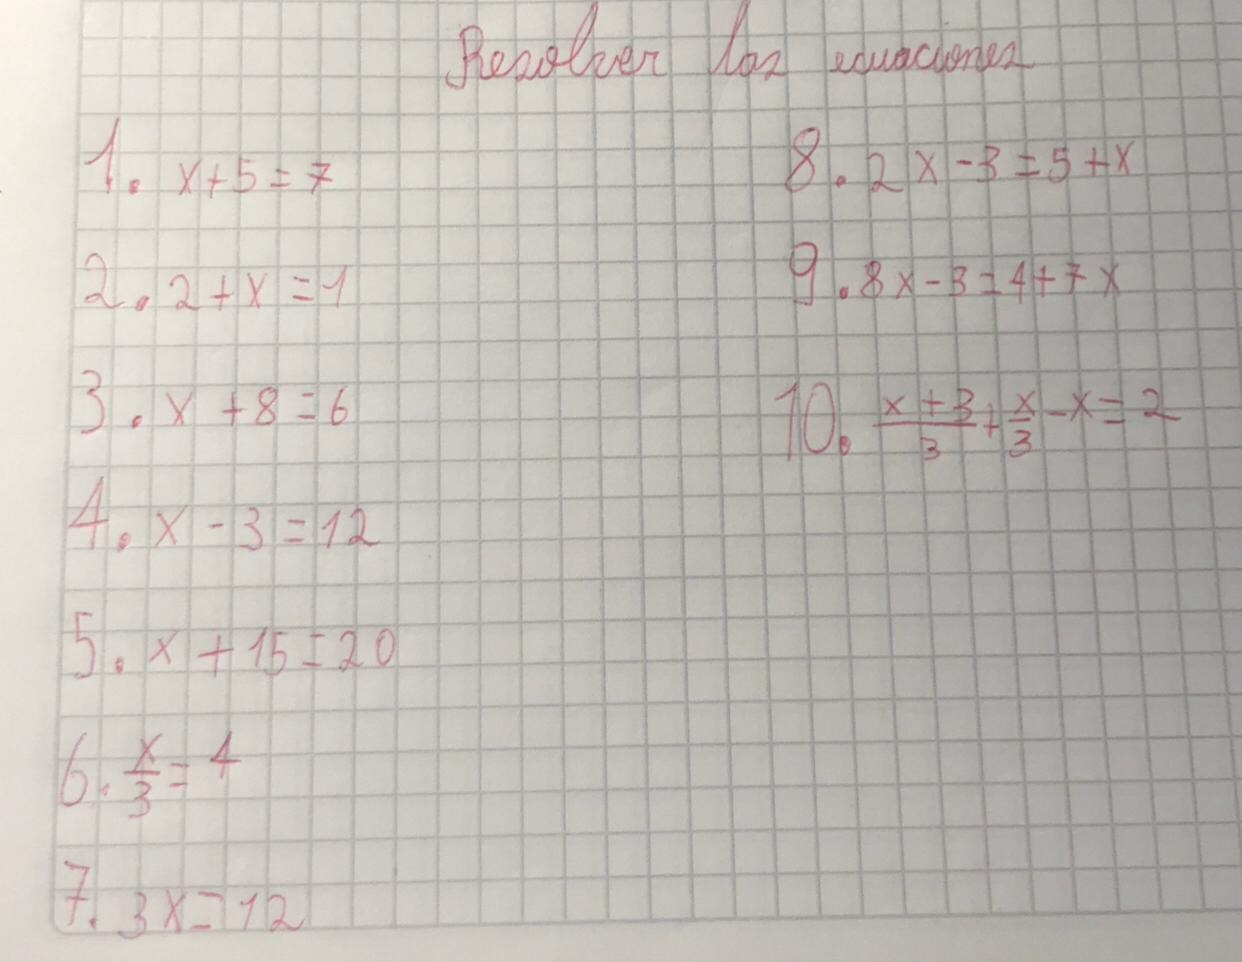 Resolver las ecuaciones
1. x+5=7
2. 2+x=1
3. x+8=6
4. x-3=12
5. x+15=20
6. x/3=4
7. 3x=12
8. 2x-3=5+x
9. 8x-3=4+7x
10. (x+3)/3+x/3-x=2